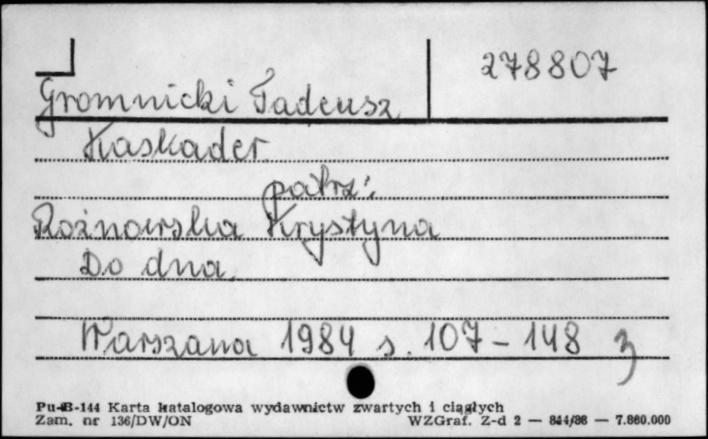 278807
Gromnicki Tadeusz
Kaskader
patrz:
Rożnowska Krystyna
Do dna.
Warszawa 1984 s. 107-148 z
Pu-B-144 Karta katalogowa wydawnictw zwartych i ciągłych
Zam. nr 136/DW/ON WZGraf. Z-d 2 — 844/86 — 7.860.000